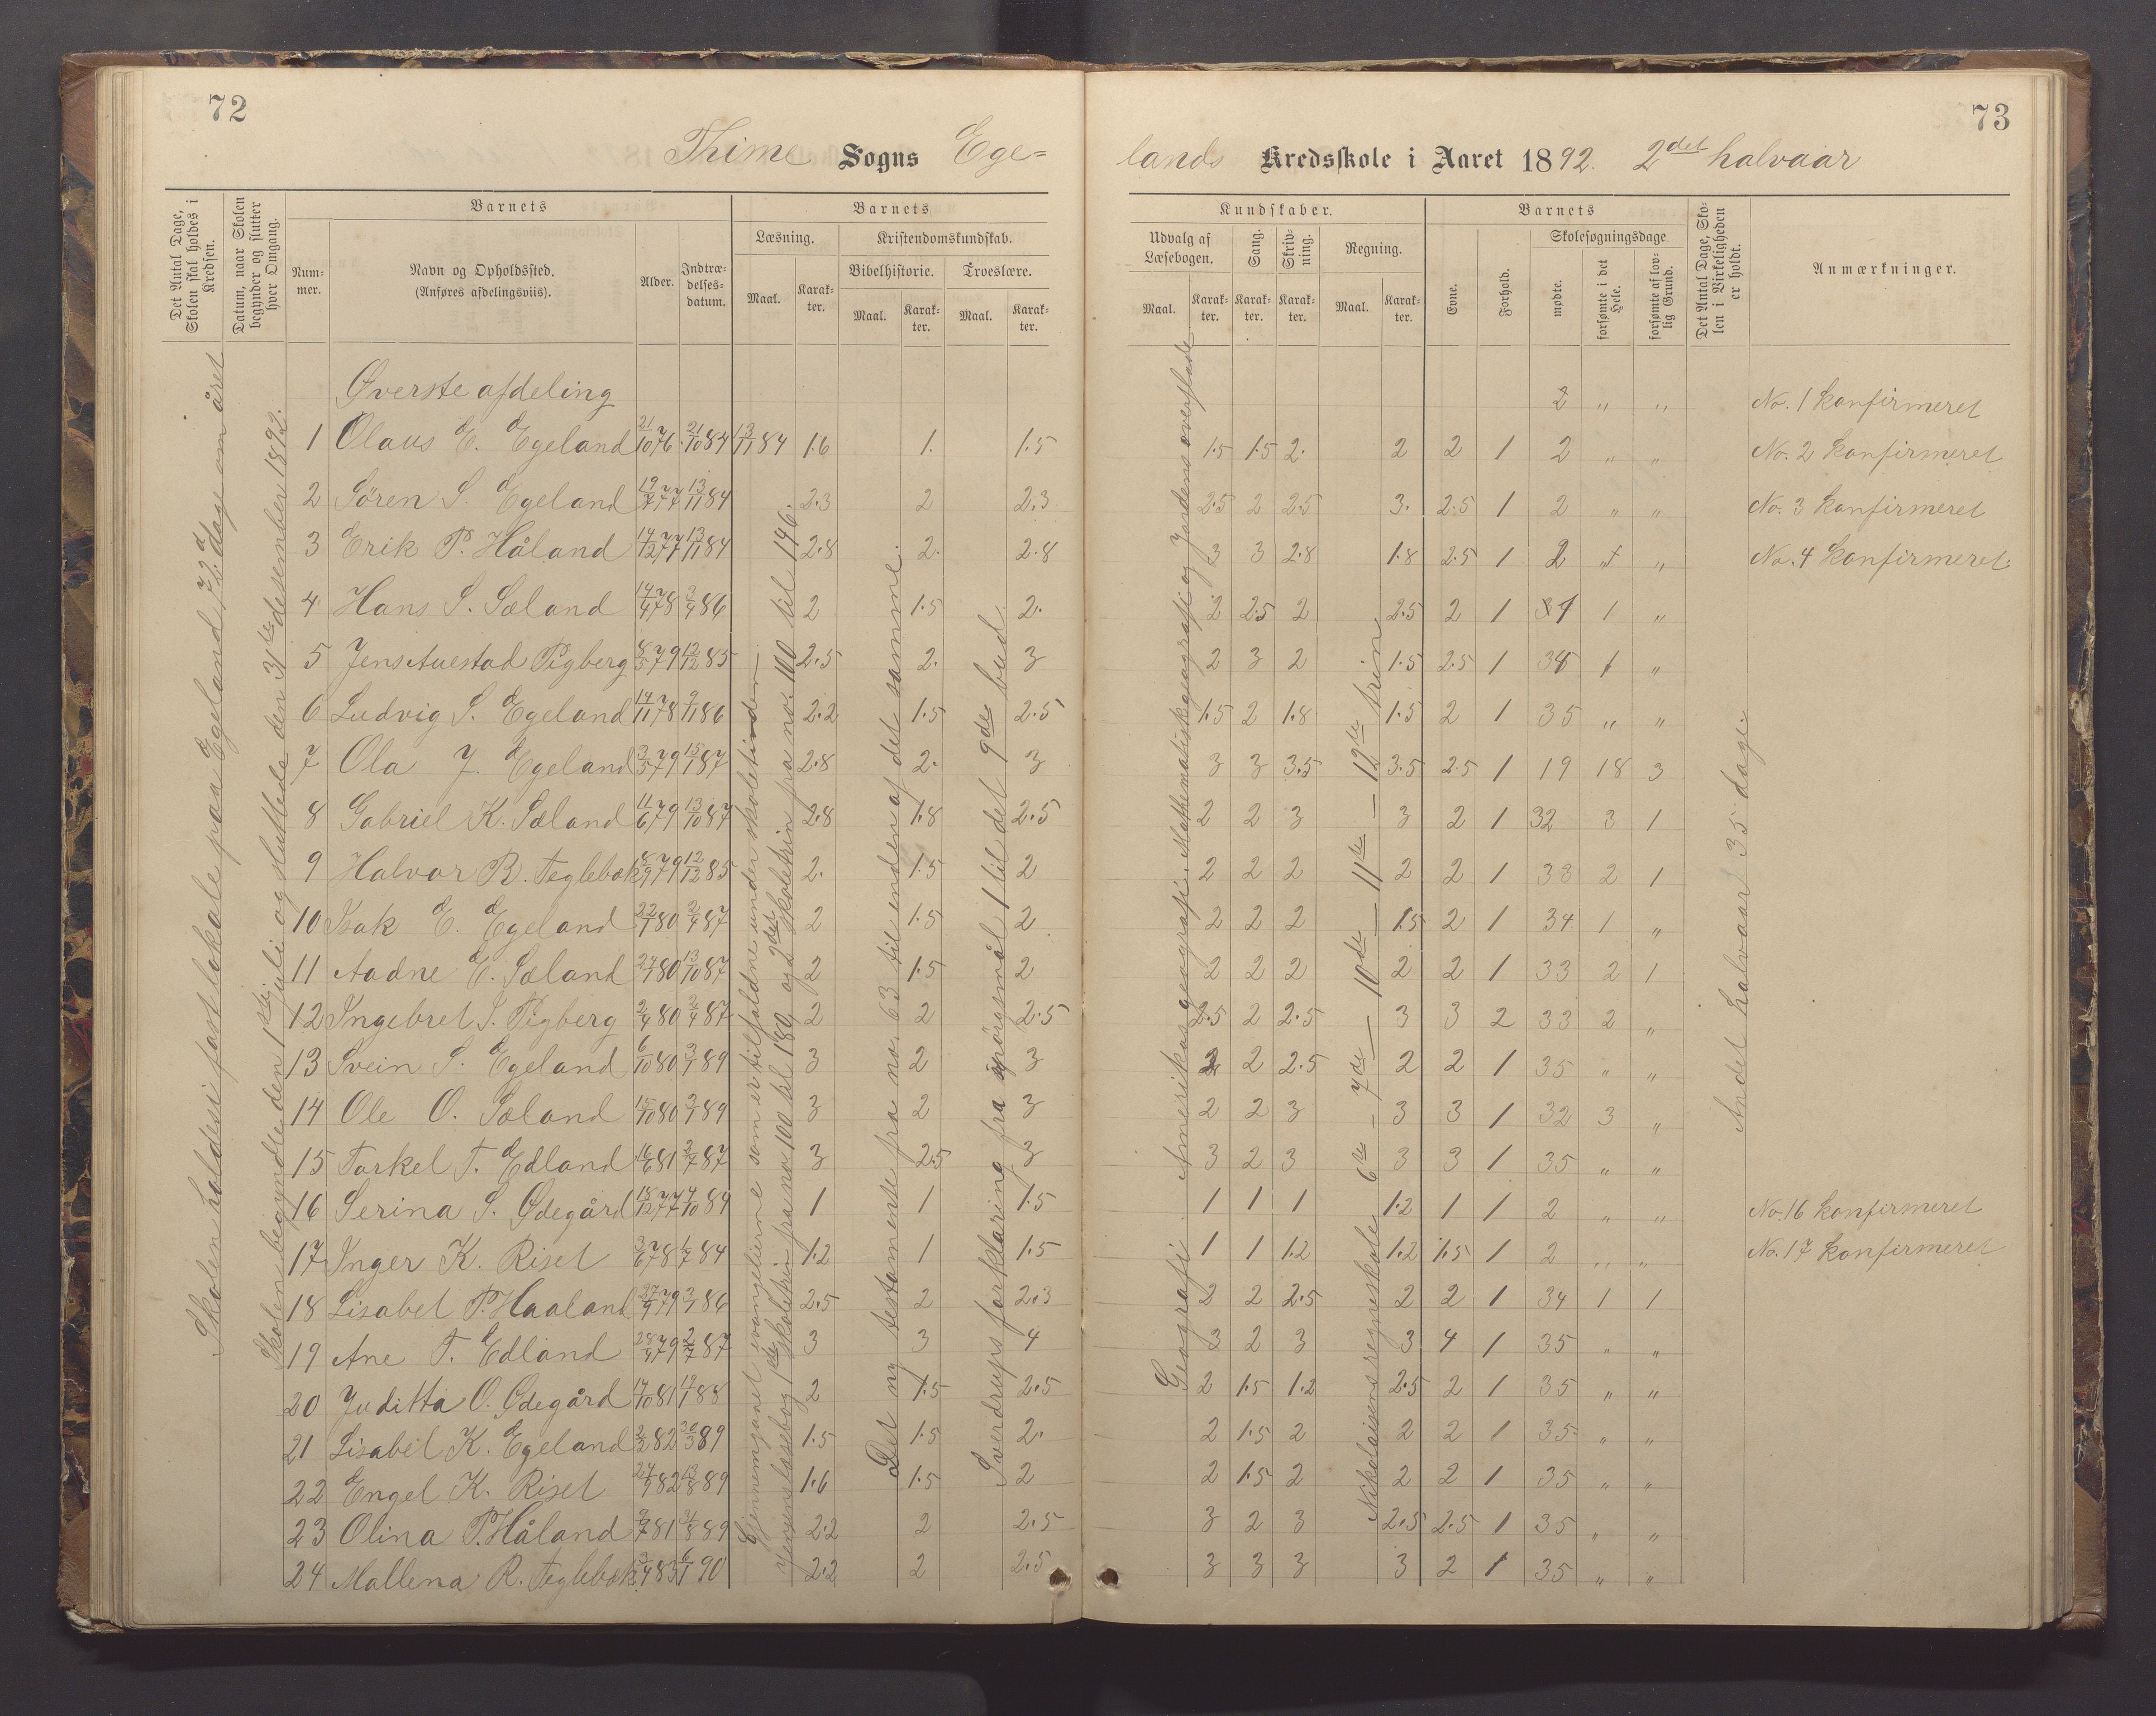 72
Thime Sogns Ege=
Det Antal Dage, Skolen skal holdes i Kredsen.
Datum, naar Skolen begynder og slutter hver Omgang.
Barnets
Barnets
Num-mer.
Navn og Opholdssted. (Anføres afdelingsviis).
Alder.
Indtræ-delses-datum.
Læsning.
Kristendomskundskab.
Bibelhistorie.
Troeslære.
Maal. Karak-ter. Maal. Karak-ter. Maal. Karak-ter.
Skolen holdes i fast lokale paa Egeland, 72 dage om året
Skolen begyndte den 1ste juli og sluttede den 31te desember 1892.
Øverste afdeling
1 Olaus E. Egeland 21/10 76 21/10 84 13/11 84 1.6 1. 1.5
2 Søren S. Egeland 19/7 77 13/11 84 2.3 2 2.3
3 Erik P. Håland 14/12 77 13/11 84 2.8 2. 2.8
4 Hans S. Sæland 14/4 78 3/9 86 2 1.5 2.
5 Jens Auestad Pigberg 8/5 79 12/12 85 2.5 2. 3
6 Ludvig S. Egeland 14/11 78 9/11 86 2.2 1.5 2.5
7 Ola J. Egeland 3/5 79 15/1 87 2.8 2. 3
8 Gabriel K. Sæland 11/6 79 13/10 87 2.8 1.8 2.5
9 Halvor R. Teglebak 8/9 79 12/12 85 2. 1.5 2
10 Isak E. Egeland 22/1 80 2/4 87 2 1.5 2
11 Aadne E. Sæland 24/1 80 13/10 87 2 1.5 2
12 Ingebret J. Pigberg 2/4 80 2/4 87 2 2 2.5
13 Svein S. Egeland 6/10 80 3/1 89 3 2 3
14 Ole O. Sæland 15/10 80 3/1 89 3 2 3
15 Torkel T. Edland 16/6 81 2/7 87 3 2.5 3
16 Serina S. Ødegård 18/12 77 4/10 84 1 1 1.5
17 Inger K. Riset 3/6 78 1/7 84 1.2 1 1.5
18 Lisabet P. Haaland 27/9 79 3/7 86 2.5 2 2.3
19 Ane T. Edland 28/4 79 2/7 87 3 3 4
20 Juditta O. Ødegård 14/10 81 19/1 88 2 1.5 2.5
21 Lisabet K. Egeland 2/2 82 30/3 89 1.5 1.5 2.
22 Engel K. Riset 24/9 82 13/8 89 1.6 1.5 2
23 Olina P. Håland 3/7 81 31/8 89 2.2 2 2.5
24 Mallena R. Teglebak 3/4 83 6/1 90 2.2 2 2.5
Gjennemgaaet evangelierne som er tilfaldne under skoletiden
Jensens læsebog 1ste skoletrin fra no 100 til 180 og 2det skoletrin fra no. 100 til 146.
Det ny testamente fra no. 63 til enden af det samme.
Sverdrups forklaring fra spørgsmål 1 til det 9de bud
73
lands Kredsskole i Aaret 1892. 2det halvaar
Kundskaber.
Barnets
Udvalg af Læsebogen.
Sang.
Skriv-ning.
Regning.
Evne.
Forhold.
Skolesøgningsdage
mødte.
forsømte i det Hele.
forsømte af lov-lig Grund.
Det Antal Dage, Sko-len i Virkeligheden er holdt.
Anmærkninger.
Maal. Karak-ter. Karak-ter. Karak-ter. Maal. Karak-ter.
2 „ „ No. 1 konfirmeret
1.5 1.5 2. 2 2 1 2 „ „ No. 2 konfirmeret
2.5 2 2.5 3. 2.5 1 2 „ „ No. 3 konfirmeret
3 3 2.8 1.8 2.5 1 2 „ „ No. 4 konfirmeret.
2 2.5 2 2.5 2 1 1 „
2 3 2 1.5 2.5 1 34 1 „
1.5 2 1.8 1.5 2 1 35 „ „
3 3 3.5 3.5 2.5 1 19 18 3
2 2 3 3 2 1 32 3 1
2 2 2 2 2 1 33 2 1
2 2 2 1.5 2 1 34 1 „
2 2 2 2 2 1 33 2 1
2.5 2 2.5 3 3 2 33 2 „
2 2 2.5 2 2 1 35 „ „
2 2 3 3 3 1 32 3 „
3 2 3 3 3 1 35 „ „
1 1 1 1.2 1 1 2 „ „ No. 16 konfirmeret
1 1 1.2 1.2 1.5 1 2 „ „ No. 17 konfirmeret
2 2 2.5 2 2 1 34 1 1
3 2 3 3 4 1 35 „ „
2 1.5 1.2 2.5 2 1 35 „ „
2 1.5 2 2 2 1 35 „ „
2 1.5 2 2 2 1 35 „ „
3 2 3 2.5 2.5 1 35 „ „
3 3 3 3 2 1 35 „ „
Geografi. Amerikas geografi. Mathematisk geografi og Jordens overflade
Nikolaisens regneskole 6te – 7de – 10de – 11te – 12te trin
Andet halvaar 35 dage.